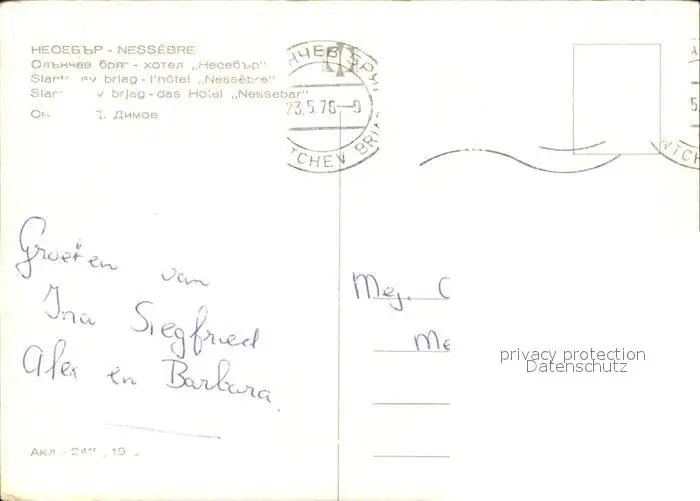 НЕСЕБЪР - NESSÈBRE
Слънчев бряг - хотел „Несебър"
briag - l'hôtel „Nessèbre"
brjag - das Hotel „Nessebar"
Димов
23.5.76-9
TCHEV BRIA
Groeten van
Ina Siegfried
Alex en Barbara.
Mej. C
Me
privacy protection
Datenschutz
Акл